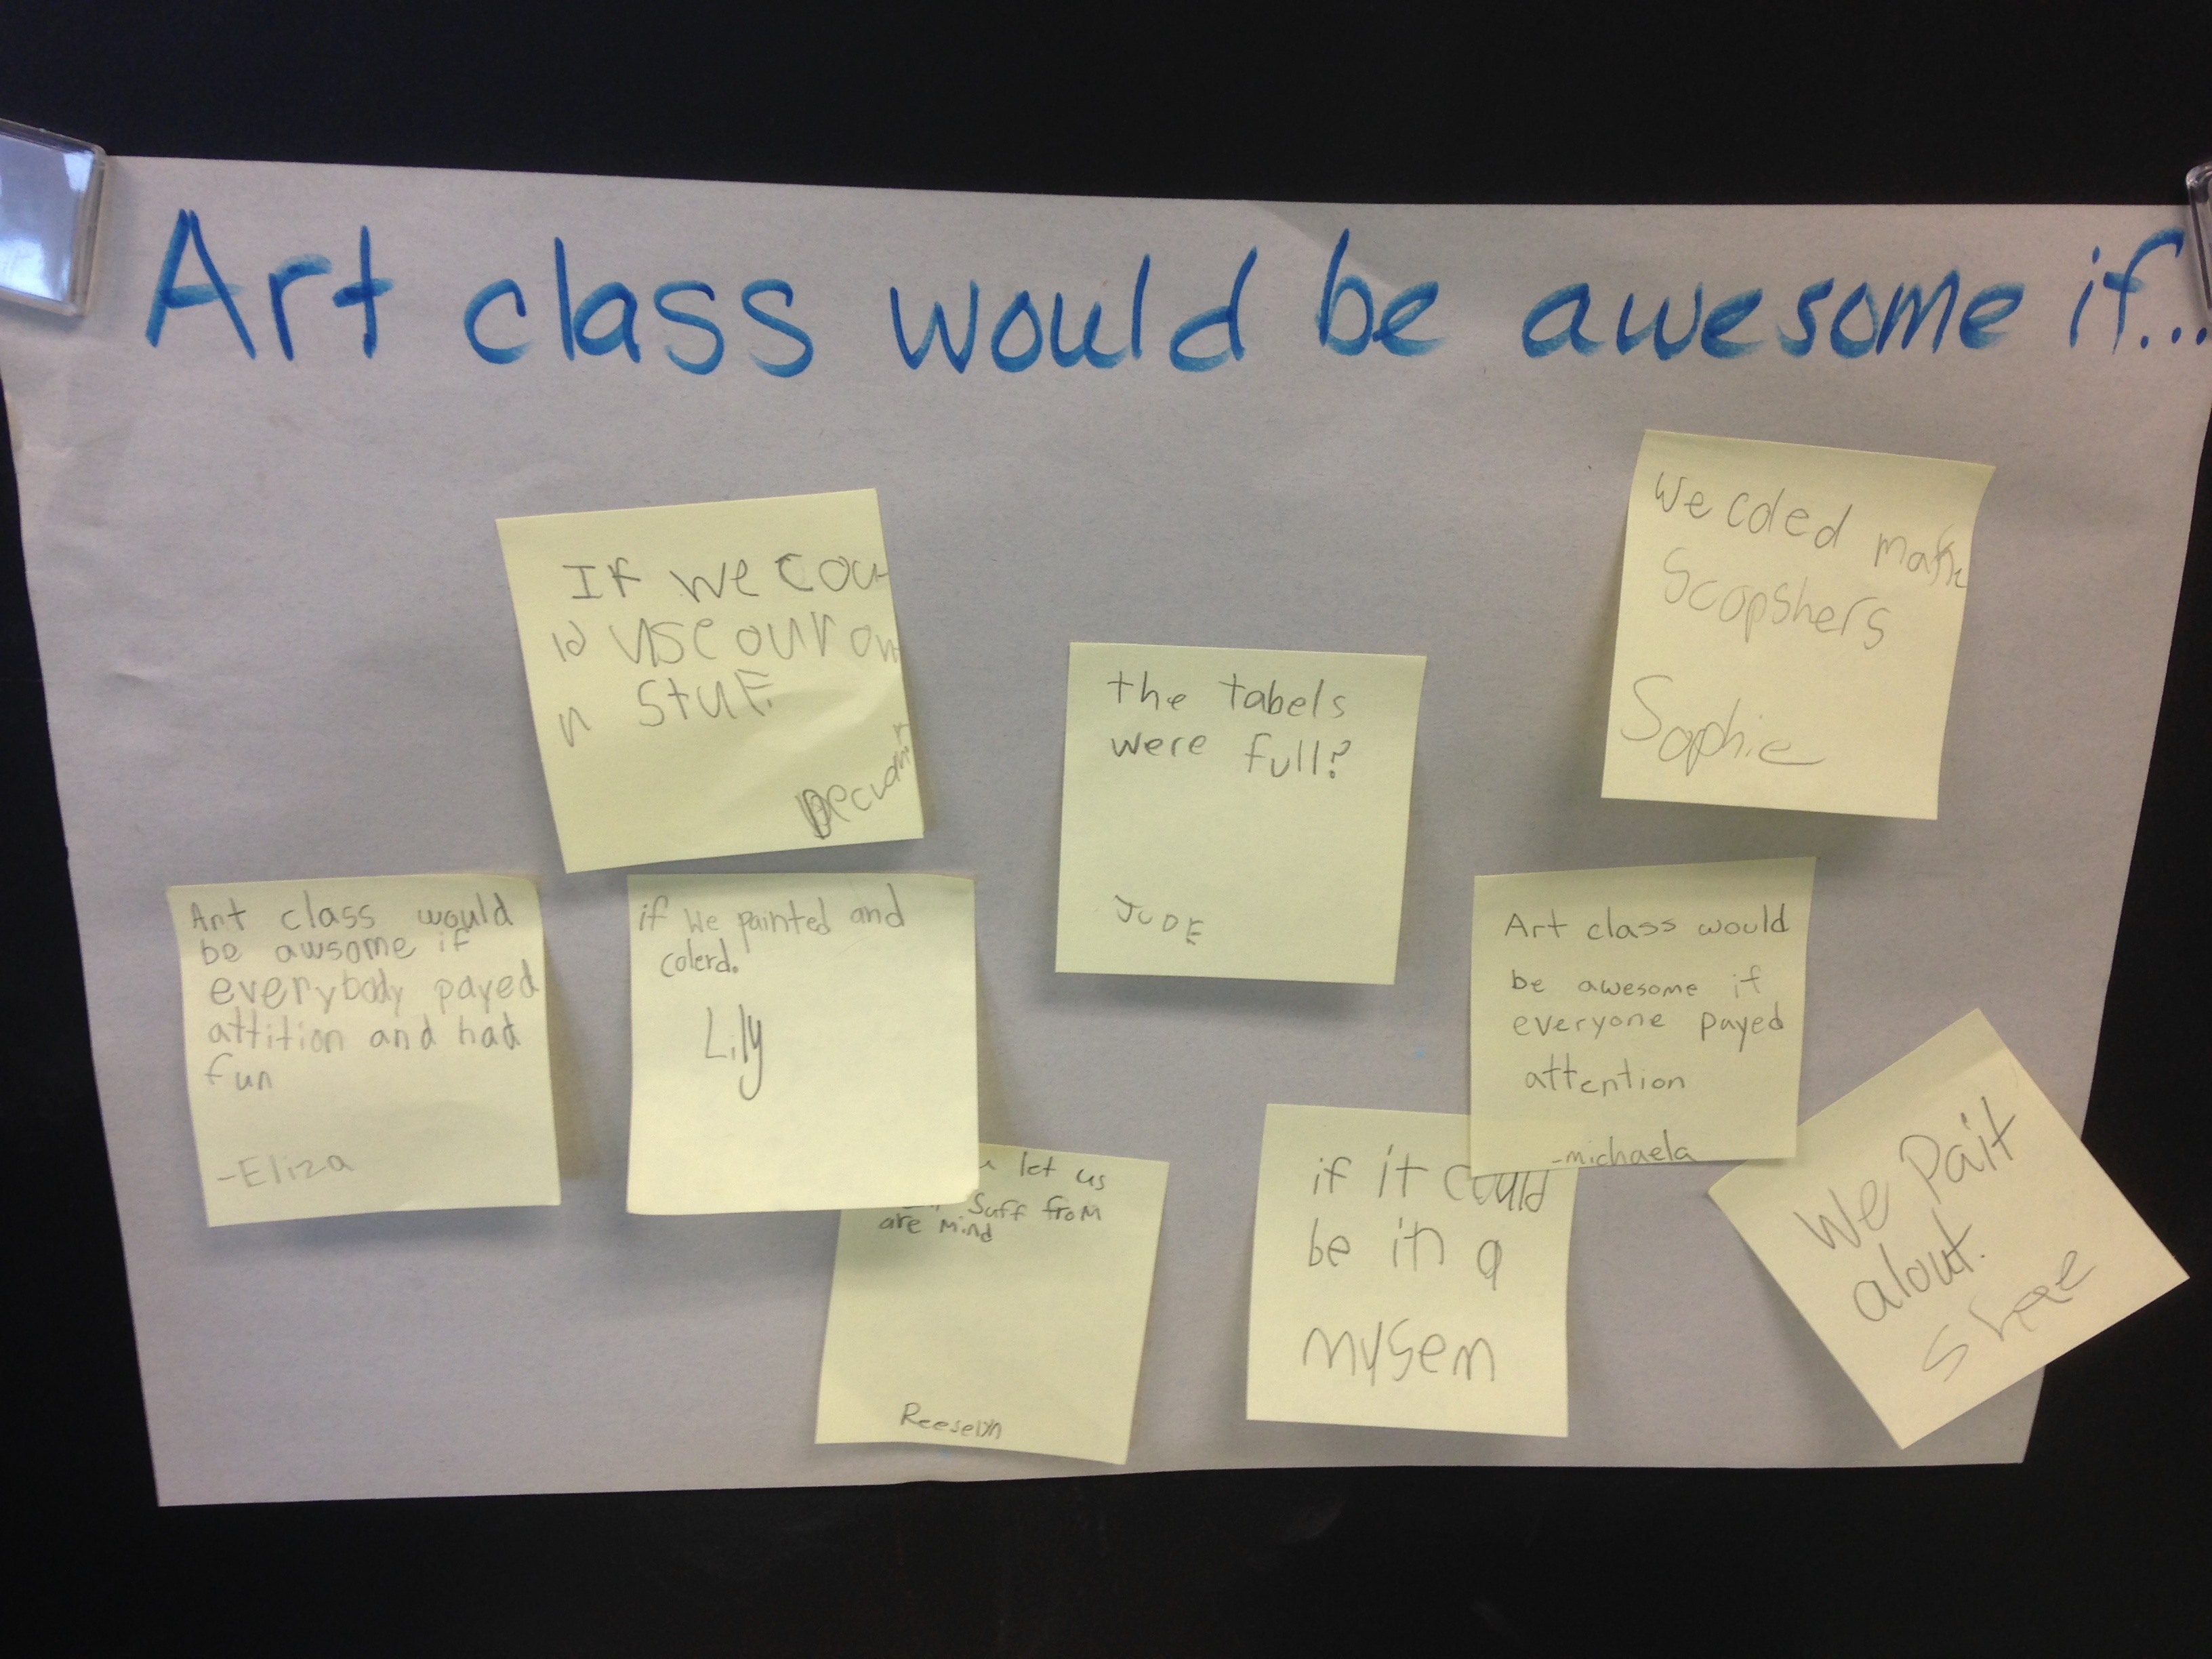 Art class would be awesome if...
If we cou
ld use our ow
n stuf.
the tabels
were full?
JUDE
we coled make
Scopshers
Sophie
Art class would
be awsome if
everybody payed
attition and had
fun
-Eliza
if we painted and
colerd.
Lily
let us
Suff from
are mind
Reeselyn
Art class would
be awesome if
everyone payed
attention
-michaela
if it could
be in a
mysem
We Pait
alout.
Shae